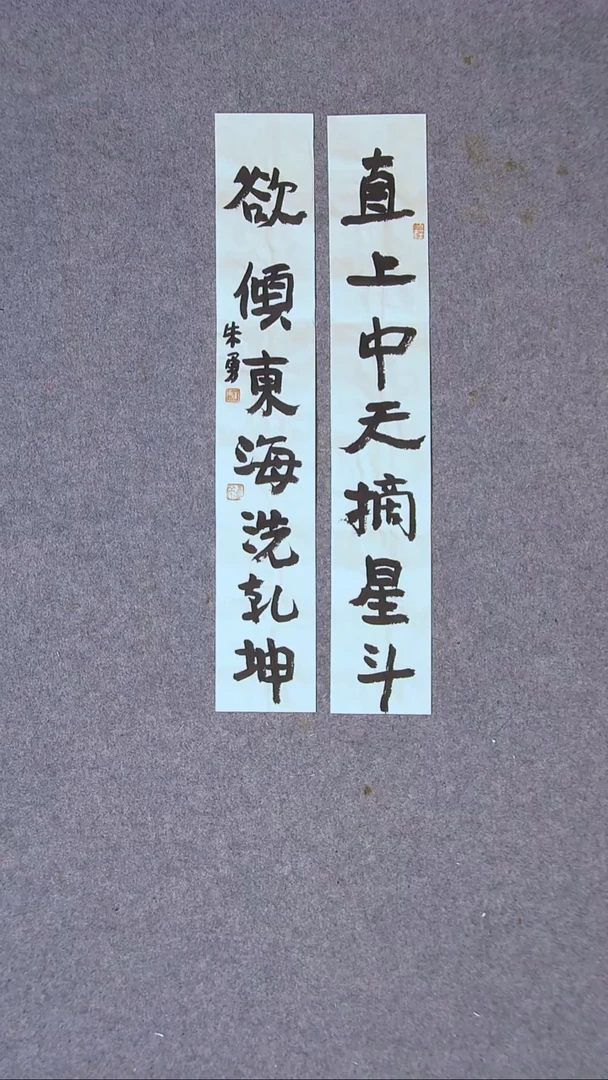 直上中天摘星斗
欲傾東海洗乾坤
朱勇